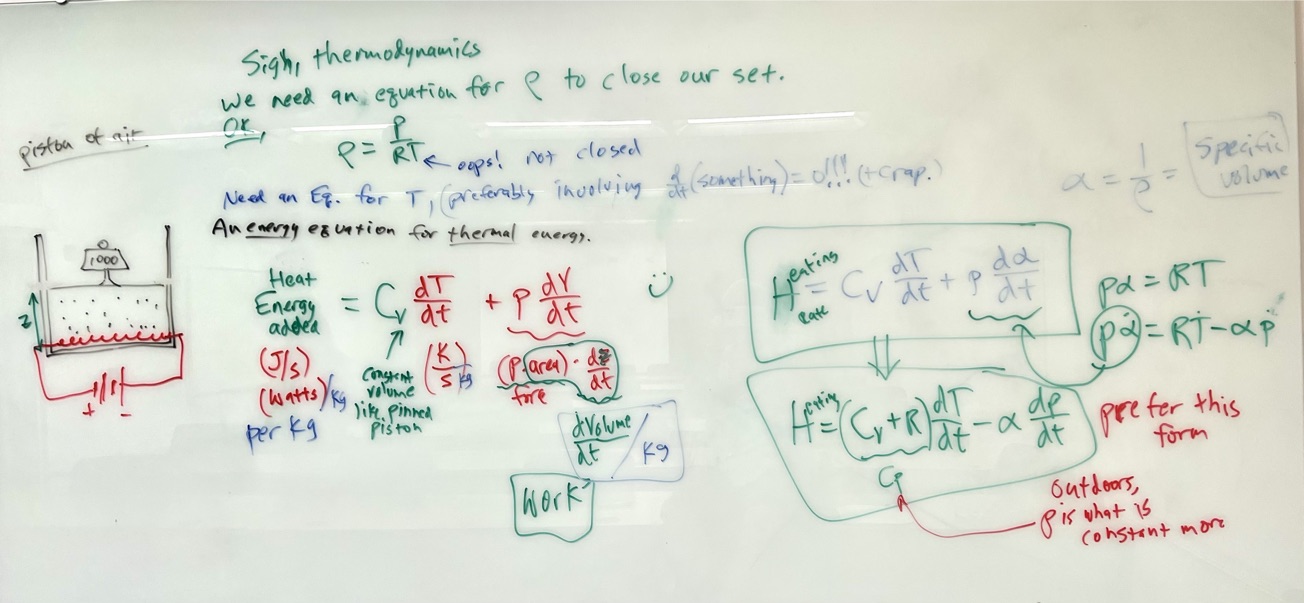 Sigh, thermodynamics
We need an equation for ρ to close our set.
OK,
ρ = P/RT ← oops! not closed
Need an Eq. for T, (preferably involving d/dt(something) = 0!!! (+crap.)
An energy equation for thermal energy.
piston of air
1000
z
+ -
Heat Energy added = Cv dT/dt + p dV/dt
(J/s)
(Watts)/kg
per kg
constant
volume
like pinned
piston
(K/s) kg
(p·area)·dz/dt
force
dVolume/dt / kg
Work
α = 1/ρ = Specific volume
Heating rate = Cv dT/dt + p dα/dt
pα = RT
pα̇ = RṪ - αṗ
Heating = (Cv+R) dT/dt - α dp/dt
Cp
prefer this
form
outdoors,
p is what is
constant more